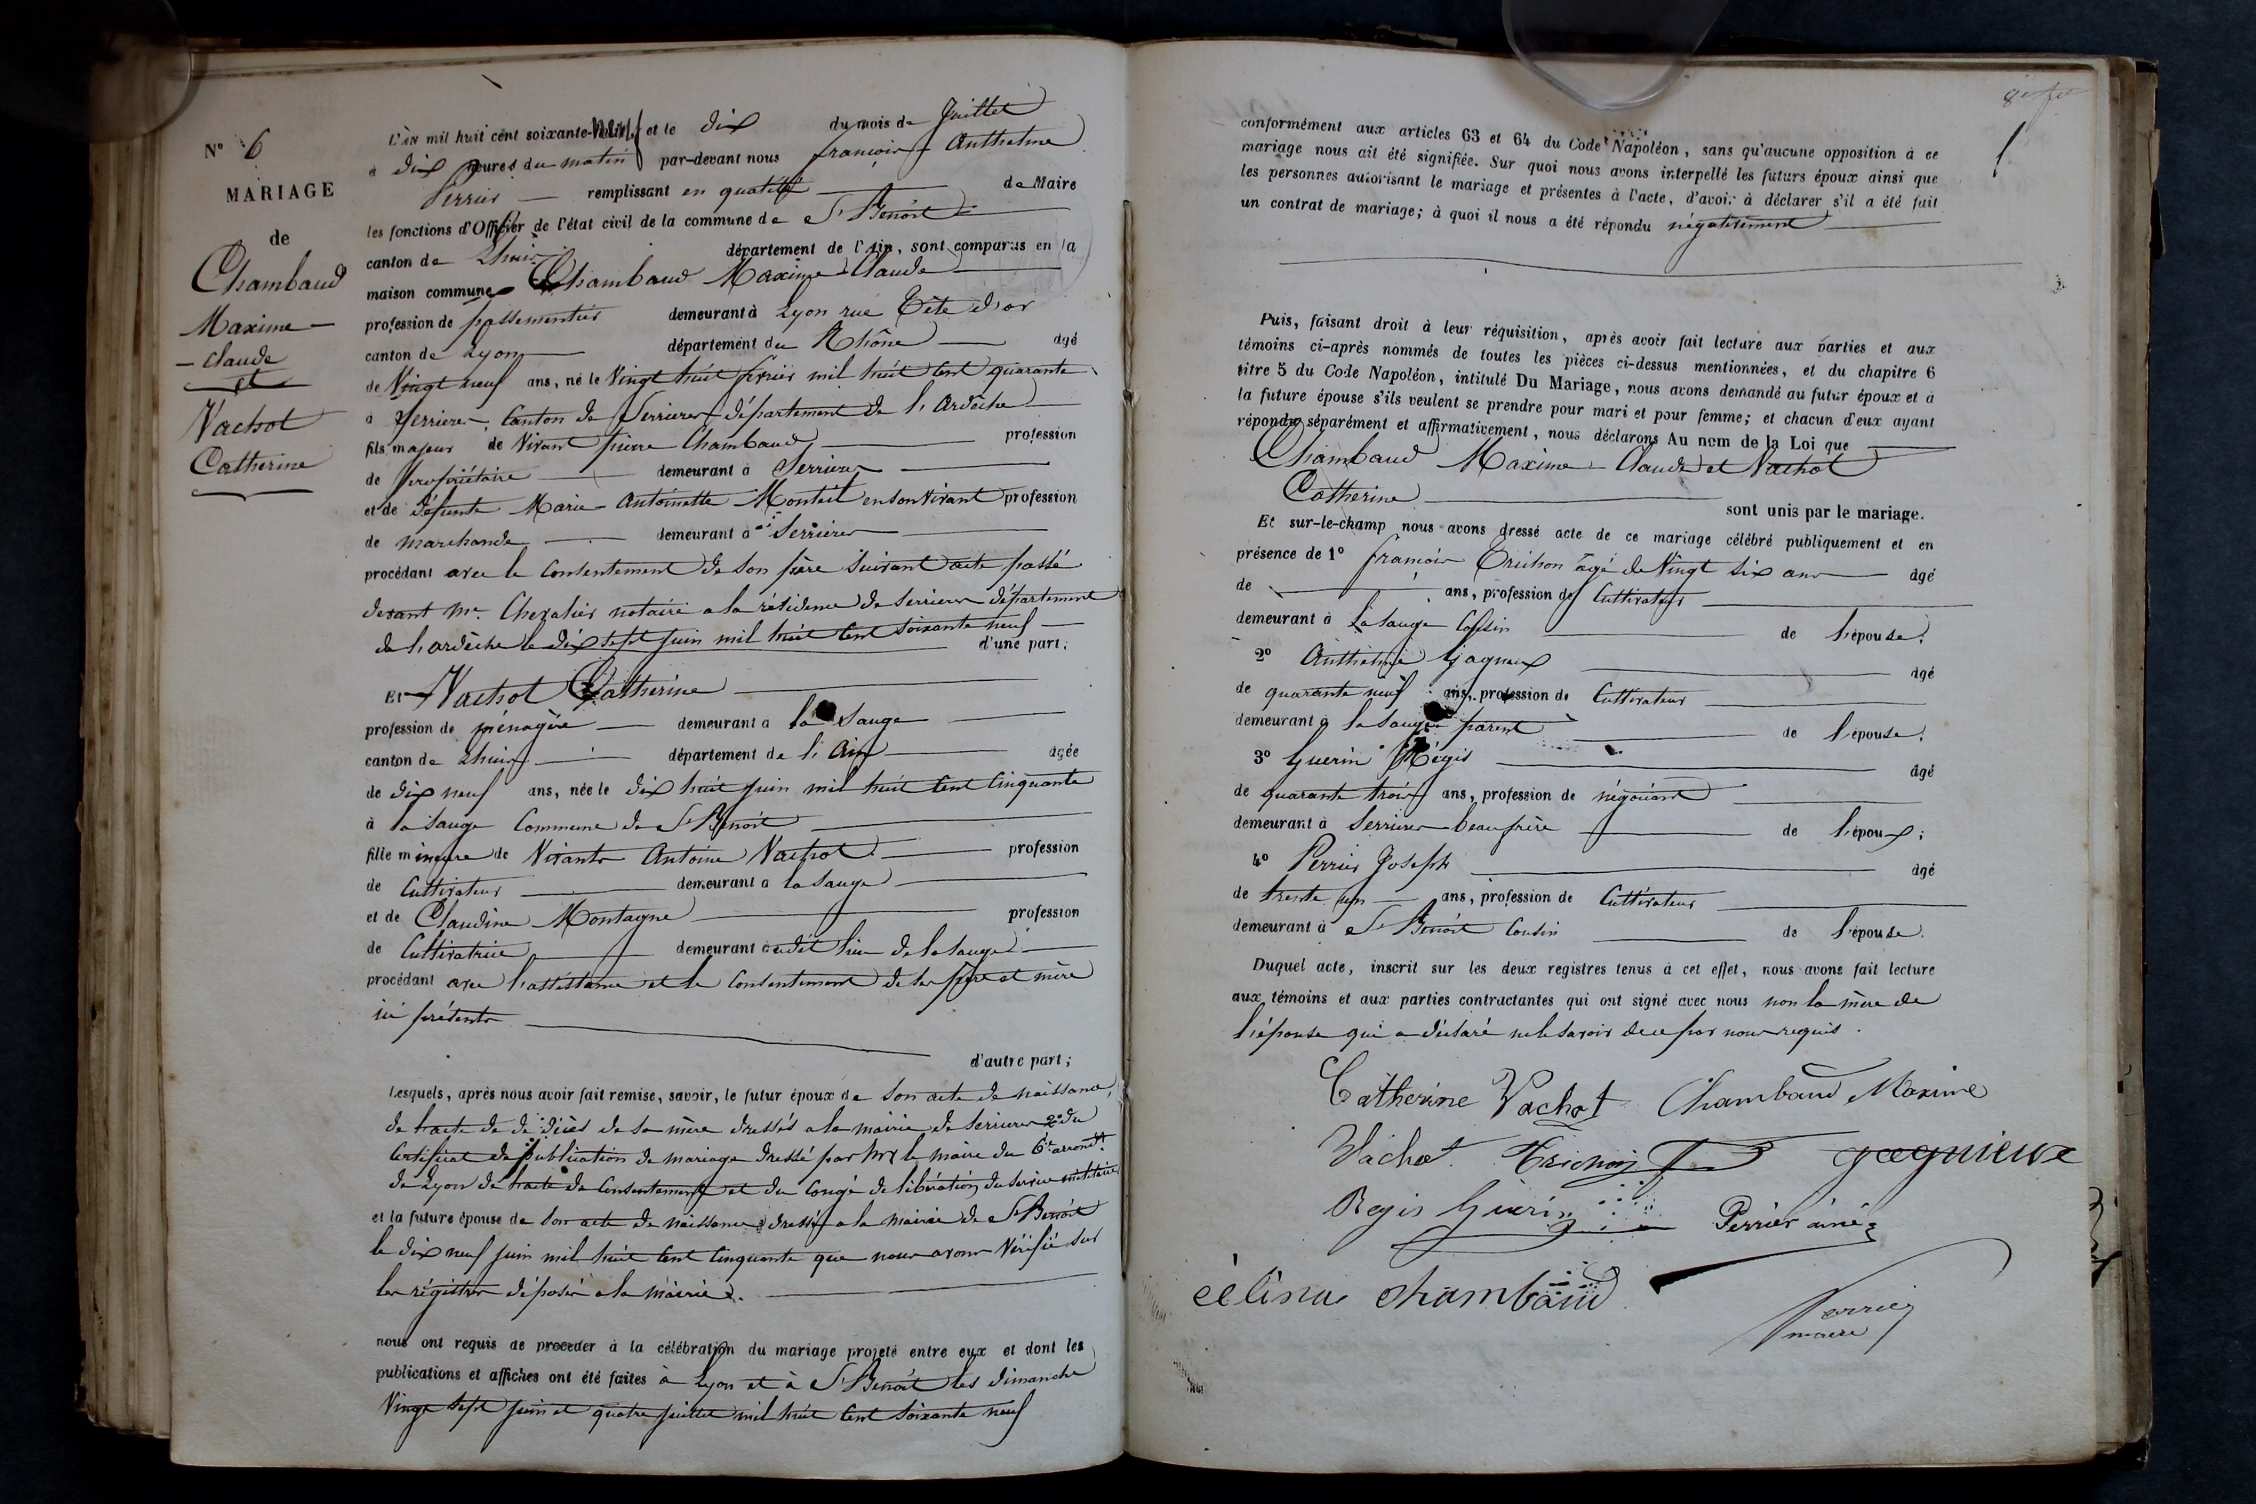 N° 6
MARIAGE
de
Chambaud
Maxime
Claude
et
Vachot
Catherine
L'an mil huit cent soixante-neuf et le dix du mois de Juillet
à dix heures du matin par-devant nous françois Anthelme
Perrier remplissant en qualité de Maire
les fonctions d'Officier de l'état civil de la commune de St Benoit
canton de Lhuis département de l'Ain, sont comparus en la
maison commune Chambaud Maxime Claude
profession de passementier demeurant à Lyon rue Tête d'or
canton de Lyon département du Rhône âgé
de Vingt neuf ans, né le Vingt huit février mil huit cent quarante
à Serrieres, Canton de Serrieres département de l'Ardèche
fils majeur de Vivant pierre Chambaud profession
de propriétaire demeurant à Serrieres
et de défunte Marie Antoinette Monteil en son Vivant profession
de marchande demeurant à Serrieres
procédant avec le Consentement de son père suivant acte passé
devant Me. Chevalier notaire a la résidence de Serrieres département
de l'ardèche le dix sept juin mil huit cent soixante neuf
d'une part;
Et Vachot Catherine
profession de ménagère demeurant a la Sauge
canton de Lhuis département de l'Ain agée
de dix neuf ans, née le dix huit juin mil huit cent Cinquante
à la Sauge Commune de St Benoit
fille mineure de Vivants Antoine Vachot profession
de Cultivateur demeurant a la Sauge
et de Claudine Montagne profession
de Cultivatrice demeurant audit lieu de la Sauge
procédant avec l'assistance et le Consentement de ses père et mère
ici présents
d'autre part;
Lesquels, après nous avoir fait remise, savoir, le futur époux de son acte de naissance,
de l'acte de décès de sa mère dressés a la mairie de Serrieres du
Certificat de publication de mariage dressé par Mr le maire du 6e arrondt.
de Lyon de l'acte de Consentement et du Congé de libération du service militaire
et la future épouse de son acte de naissance dressé a la mairie de St Benoit
le dix neuf juin mil huit cent cinquante que nous avons Vérifié sur
les régistres déposés a la mairie.
nous ont requis de procéder à la célébration du mariage projeté entre eux et dont les
publications et affiches ont été faites à Lyon et à St Benoit les dimanche
Vingt sept juin et quatre juillet mil huit cent soixante neuf
conformément aux articles 63 et 64 du Code Napoléon, sans qu'aucune opposition à ce
mariage nous ait été signifiée. Sur quoi nous avons interpellé les futurs époux ainsi que
les personnes autorisant le mariage et présentes à l'acte, d'avoir à déclarer s'il a été fait
un contrat de mariage; à quoi il nous a été répondu négativement
Puis, faisant droit à leur réquisition, après avoir fait lecture aux parties et aux
témoins ci-après nommés de toutes les pièces ci-dessus mentionnées, et du chapitre 6
titre 5 du Code Napoléon, intitulé Du Mariage, nous avons demandé au futur époux et à
la future épouse s'ils veulent se prendre pour mari et pour femme; et chacun d'eux ayant
répondu séparément et affirmativement, nous déclarons Au nom de la Loi que
Chambaud Maxime Claude et Vachot
Catherine sont unis par le mariage.
Et sur-le-champ nous avons dressé acte de ce mariage célébré publiquement et en
présence de 1° françois Trichon âgé de Vingt six ans âgé
de ans, profession de Cultivateur
demeurant à La Sauge Cousin de l'épouse.
2° Anthelme Gagneux âgé
de quarante neuf ans, profession de Cultivateur
demeurant à la Sauge parent de l'épouse.
3° Guerin Régis âgé
de quarante trois ans, profession de négociant
demeurant à Serrieres beau frère de l'époux;
4° Perrier Joseph âgé
de trente un ans, profession de Cultivateur
demeurant à St Benoit Cousin de l'épouse.
Duquel acte, inscrit sur les deux registres tenus à cet effet, nous avons fait lecture
aux témoins et aux parties contractantes qui ont signé avec nous non la mère de
l'épouse qui a déclaré ne le savoir de ce par nous requis.
Catherine Vachot Chambaud Maxime
Vachot Trichon gagnieux
Regis Guérin Perrier ainé
célina chambaud
Perrier
maire